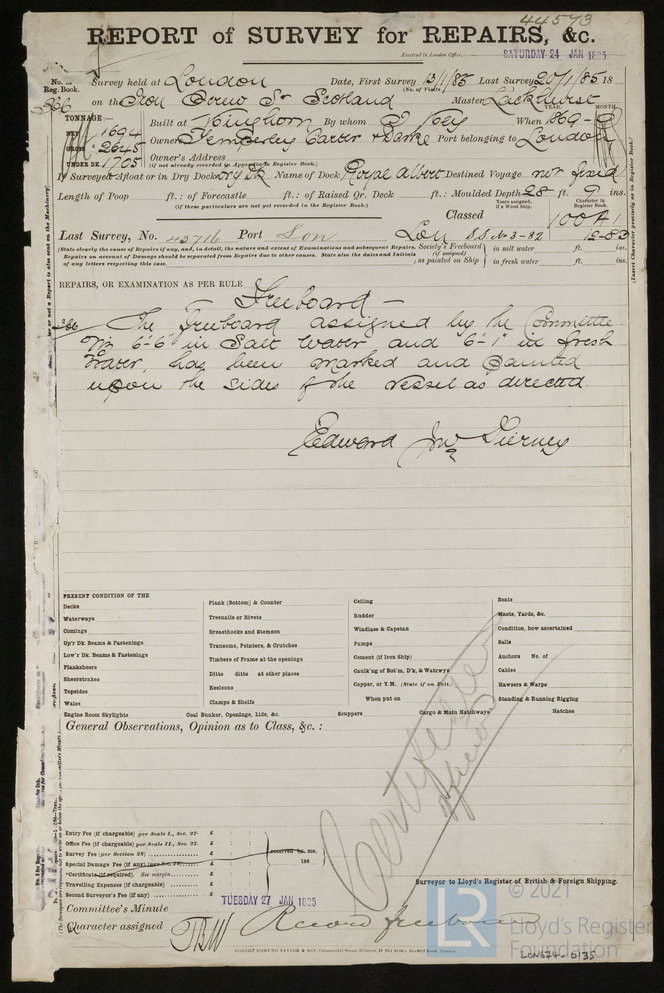 44573
REPORT of SURVEY for REPAIRS, &c.
Received in London Office, SATURDAY 24 JAN 1885
No. in Reg. Book.
Survey held at London Date, First Survey 13/1/85 Last Survey 20/1/85 18
(No. of Visits)
366 on the Iron Screw Sr Scotland Master
TONNAGE:—
YEAR. MONTH.
NET 1694 Built at Kinghorn By whom J Key When 1869-
GROSS 2645 Owners Temperley Carter & Darke Port belonging to London
UNDER DK. 1705 Owner's Address
(if not already recorded in Appendix to Register Book.)
If Surveyed Afloat or in Dry Dock Dry Dk Name of Dock Royal Albert Destined Voyage not fixed
Length of Poop ft.: of Forecastle ft.: of Raised Qr. Deck ft.: Moulded Depth 28 ft. 9 ins.
(if these particulars are not yet recorded in the Register Book.)
Years assigned, if a Wood Ship. Character in Register Book.
Classed 100A1
Last Survey, No. 43716 Port Lon Lon S.S. No 3-82 12-83
(State clearly the cause of Repairs if any, and, in detail, the nature and extent of Examinations and subsequent Repairs.
Repairs on account of Damage should be separated from Repairs due to other causes. State also the dates and Initials
of any letters respecting this case.
Society's Freeboard (if assigned) as painted on Ship
in salt water ft. ins.
in fresh water ft. ins.
REPAIRS, OR EXAMINATION AS PER RULE
Freeboard —
366 The Freeboard assigned by the Committee
6'-6" in Salt Water and 6'-1" in fresh
Water, has been marked and painted
upon the sides of the vessel as directed.
Edward Jno Tierney
PRESENT CONDITION OF THE
Decks
Waterways
Comings
Up'r Dk. Beams & Fastenings
Low'r Dk. Beams & Fastenings
Planksheers
Sheerstrakes
Topsides
Wales
Engine Room Skylights
Plank (Bottom) & Counter
Treenails or Rivets
Breasthooks and Stemson
Transoms, Pointers, & Crutches
Timbers of Frame at the openings
Ditto ditto at other places
Keelsons
Clamps & Shelfs
Coal Bunker, Openings, Lids, &c.
Ceiling
Rudder
Windlass & Capstan
Pumps
Cement (if Iron Ship)
Caulk'ng of Bot'm, D'k, & Watrwys
Copper, or Y.M. (State if on Felt.)
When put on
Scuppers
Cargo & Main Hatchways
Boats
Masts, Yards, &c.
Condition, how ascertained
Sails
Anchors No. of
Cables
Hawsers & Warps
Standing & Running Rigging
Hatches
General Observations, Opinion as to Class, &c. :
Certificate
Entry Fee (if chargeable) per Scale I., Sec. 27. £
Office Fee (if chargeable) per Scale II., Sec. 27. £
Survey Fee (per Section 28) £
Special Damage Fee (if any) (per Sec. 28) £
*Certificate (if required). See margin. £
Travelling Expenses (if chargeable) £
Second Surveyor's Fee (if any) £
received by me,
188
Surveyor to Lloyd's Register of British & Foreign Shipping.
TUESDAY 27 JAN 1885
Committee's Minute
Character assigned Record freeboard
© 2021
LR
Lloyd's Register
Foundation
LON574-0135